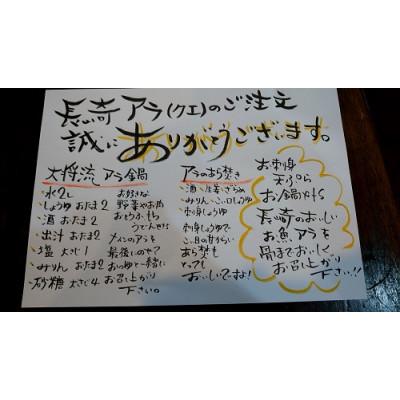 長崎 アラ(クエ)のご注文
誠にありがとうございます。
大将流 アラ鍋
・水2L
・しょうゆ おたま2
・酒 おたま2
・出汁 おたま2
・塩 大さじ1
・みりん おたま2
・砂糖 大さじ4
お好きな
野菜やお肉
おとうふ、もち
うどんぜに
メインのアラを
最後にのせて
おつゆと一緒に
お召し上がり
下さい。
アラのあら炊き
・酒・生姜・ざらめ
・みりん・こい口しょうゆ
・刺身しょうゆ
刺身しょうゆで
こい目の甘からい
あら炊も
とっても
おいしいですよ!
お刺身
天ぷら
お鍋
長崎のおいしい
お魚アラを
骨までおいしく
お召し上がり
下さい!!